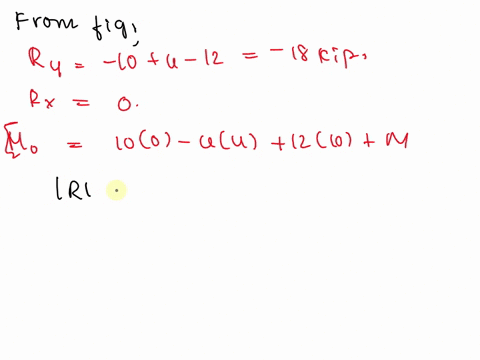 From fig,
Ry = -10 + 4 - 12 = -18 kip,
Rx = 0.
ΣM₀ = 10(0) - 4(4) + 12(6) + M
|R|